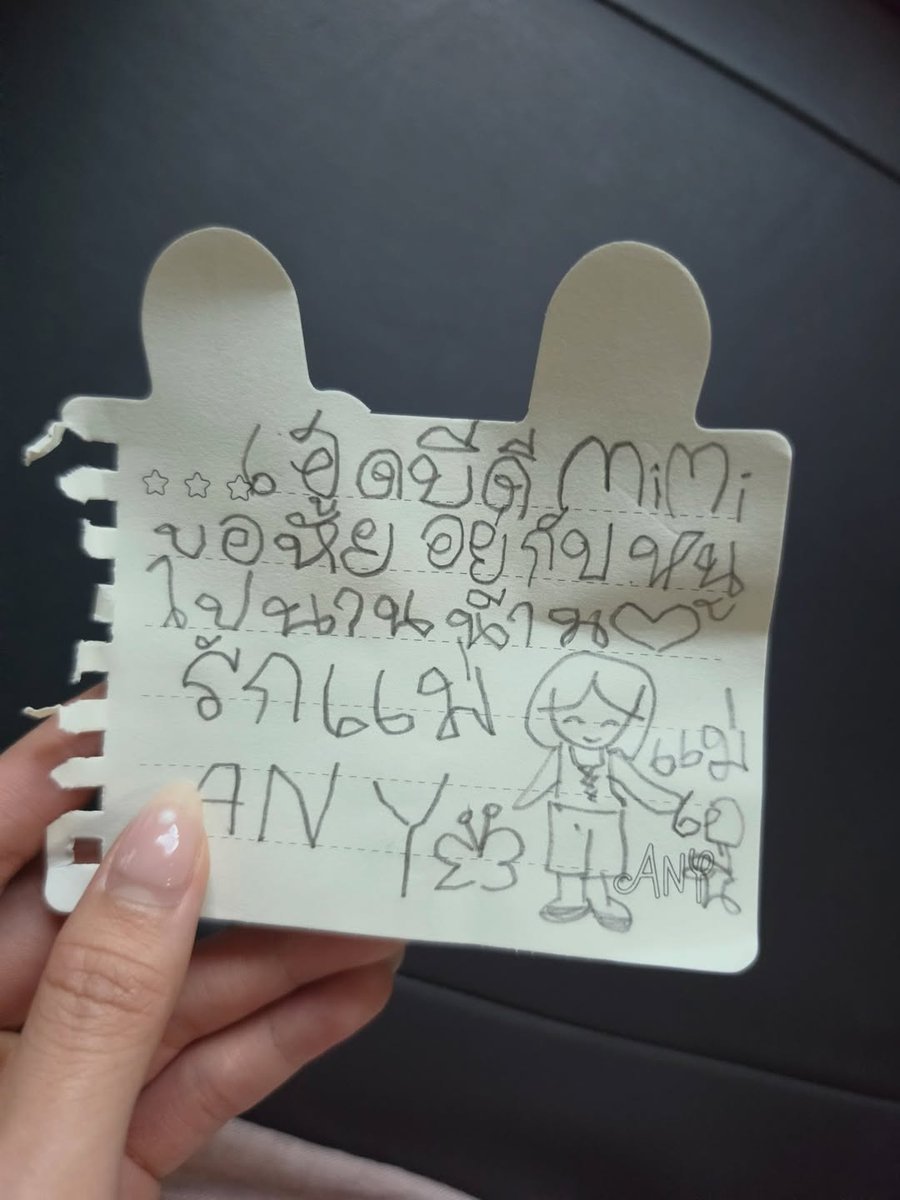 เฮ็ดบีดี MiMi
ขอหัย อยู่กับ หนู
ไปนาน น๊าน
รักแม่
แม่
ANY
ANY